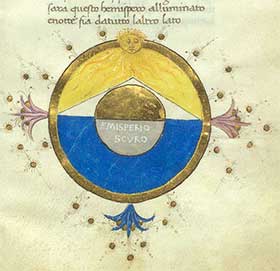 sara questo hemispero alluminato
enotte fia datutto laltro lato
EMISPERIO
SCVRO